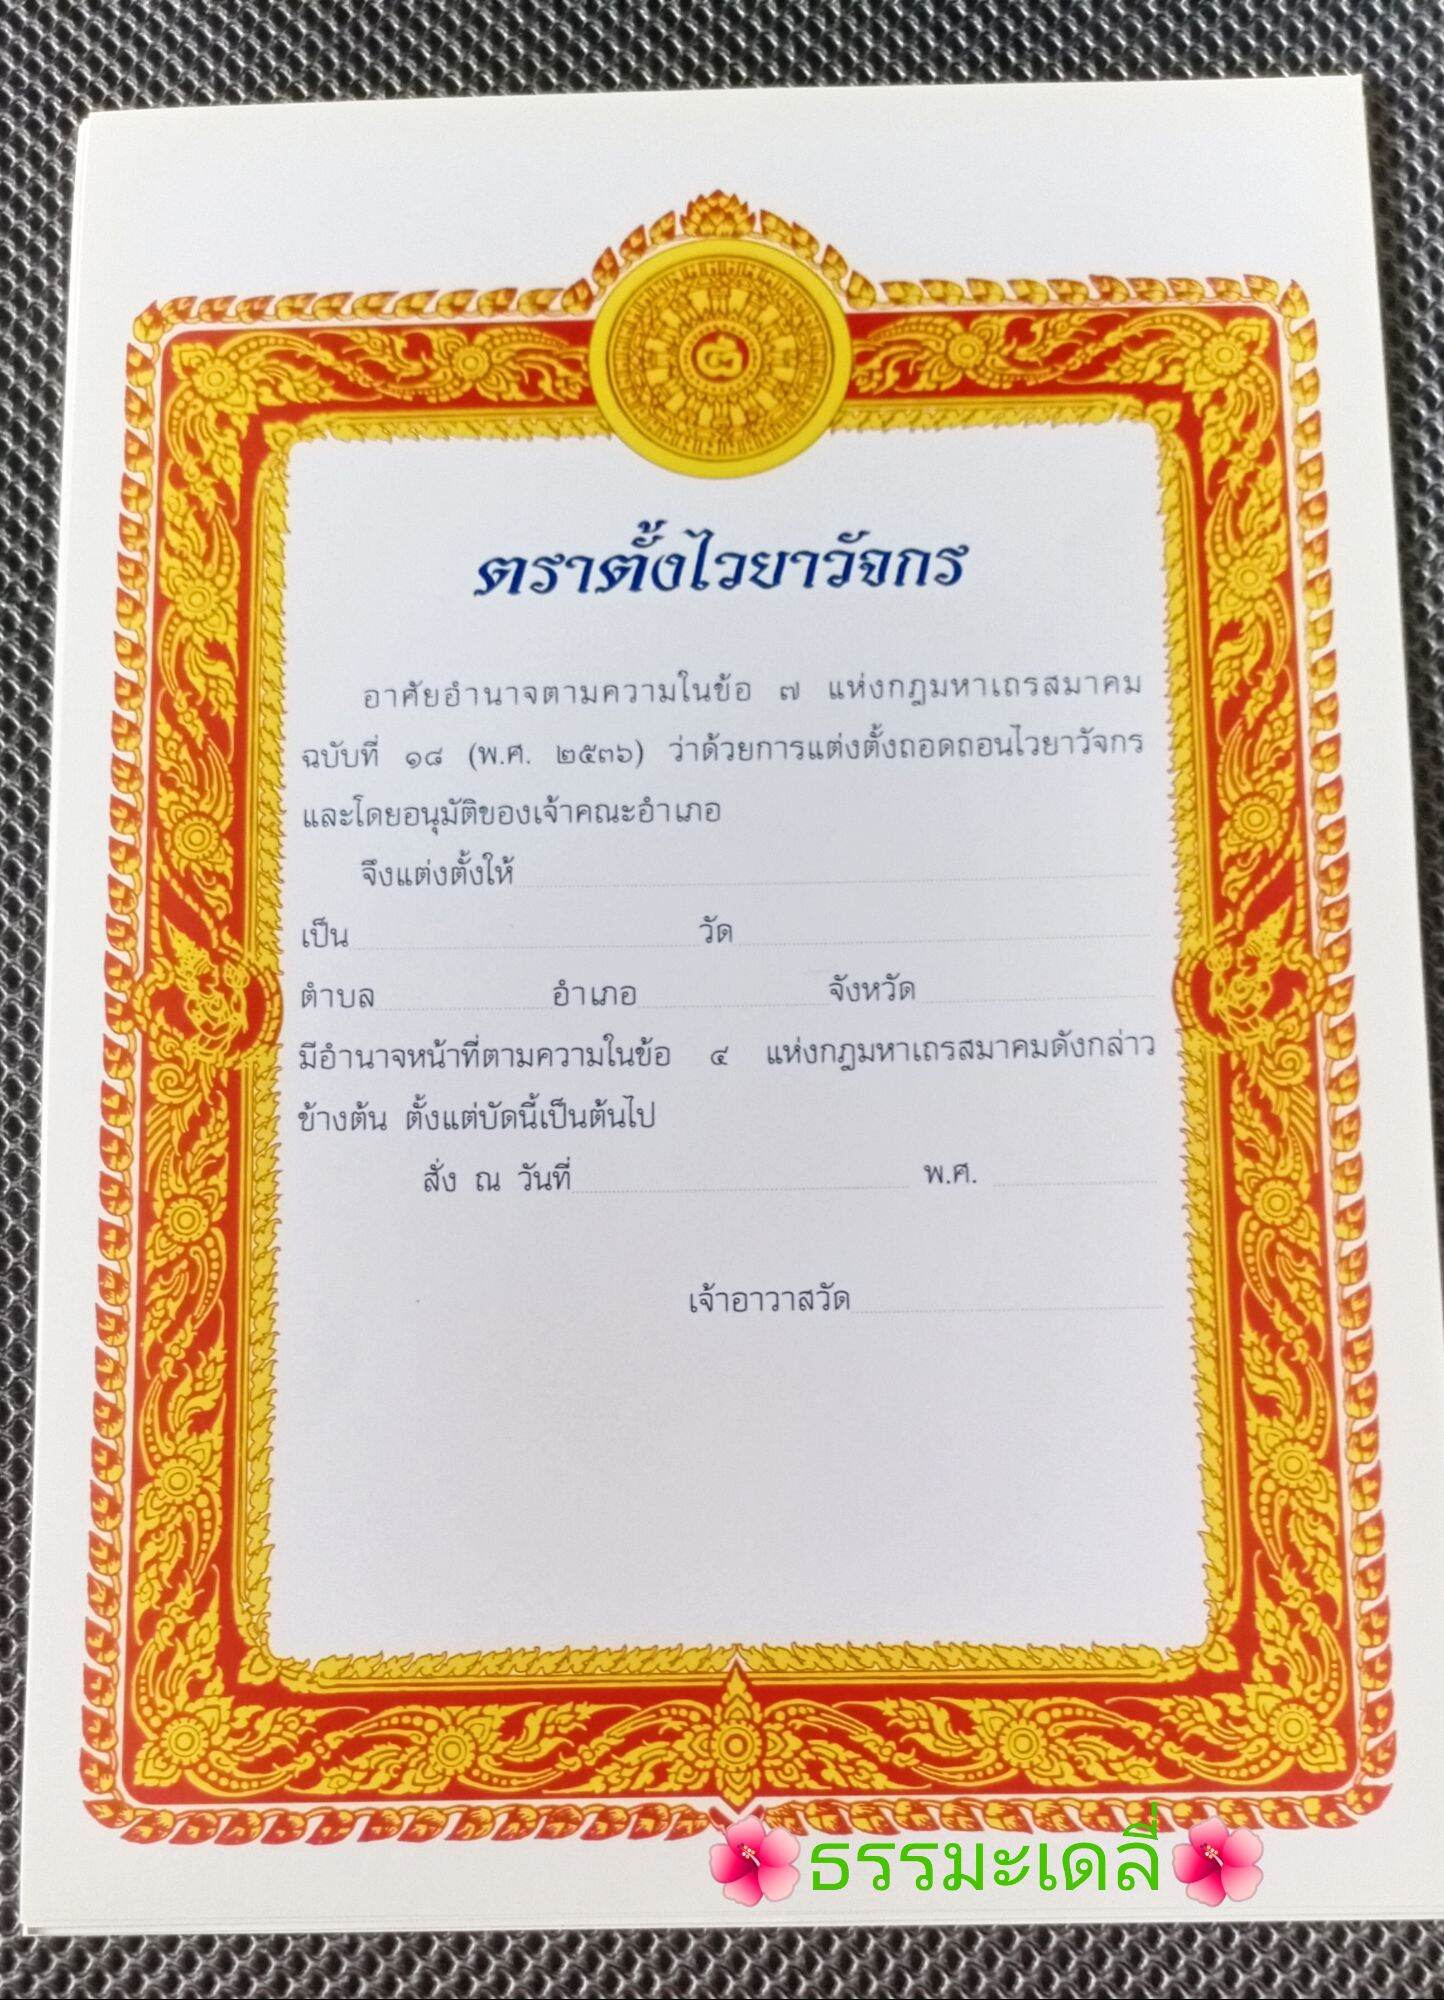 ตราตั้งไวยาวัจกร
อาศัยอำนาจตามความในข้อ ๗ แห่งกฎมหาเถรสมาคม
ฉบับที่ ๑๘ (พ.ศ. ๒๕๓๖) ว่าด้วยการแต่งตั้งถอดถอนไวยาวัจกร
และโดยอนุมัติของเจ้าคณะอำเภอ
จึงแต่งตั้งให้
เป็น วัด
ตำบล อำเภอ จังหวัด
มีอำนาจหน้าที่ตามความในข้อ ๔ แห่งกฎมหาเถรสมาคมดังกล่าว
ข้างต้น ตั้งแต่บัดนี้เป็นต้นไป
สั่ง ณ วันที่ พ.ศ.
เจ้าอาวาสวัด
ธรรมะเดลี่